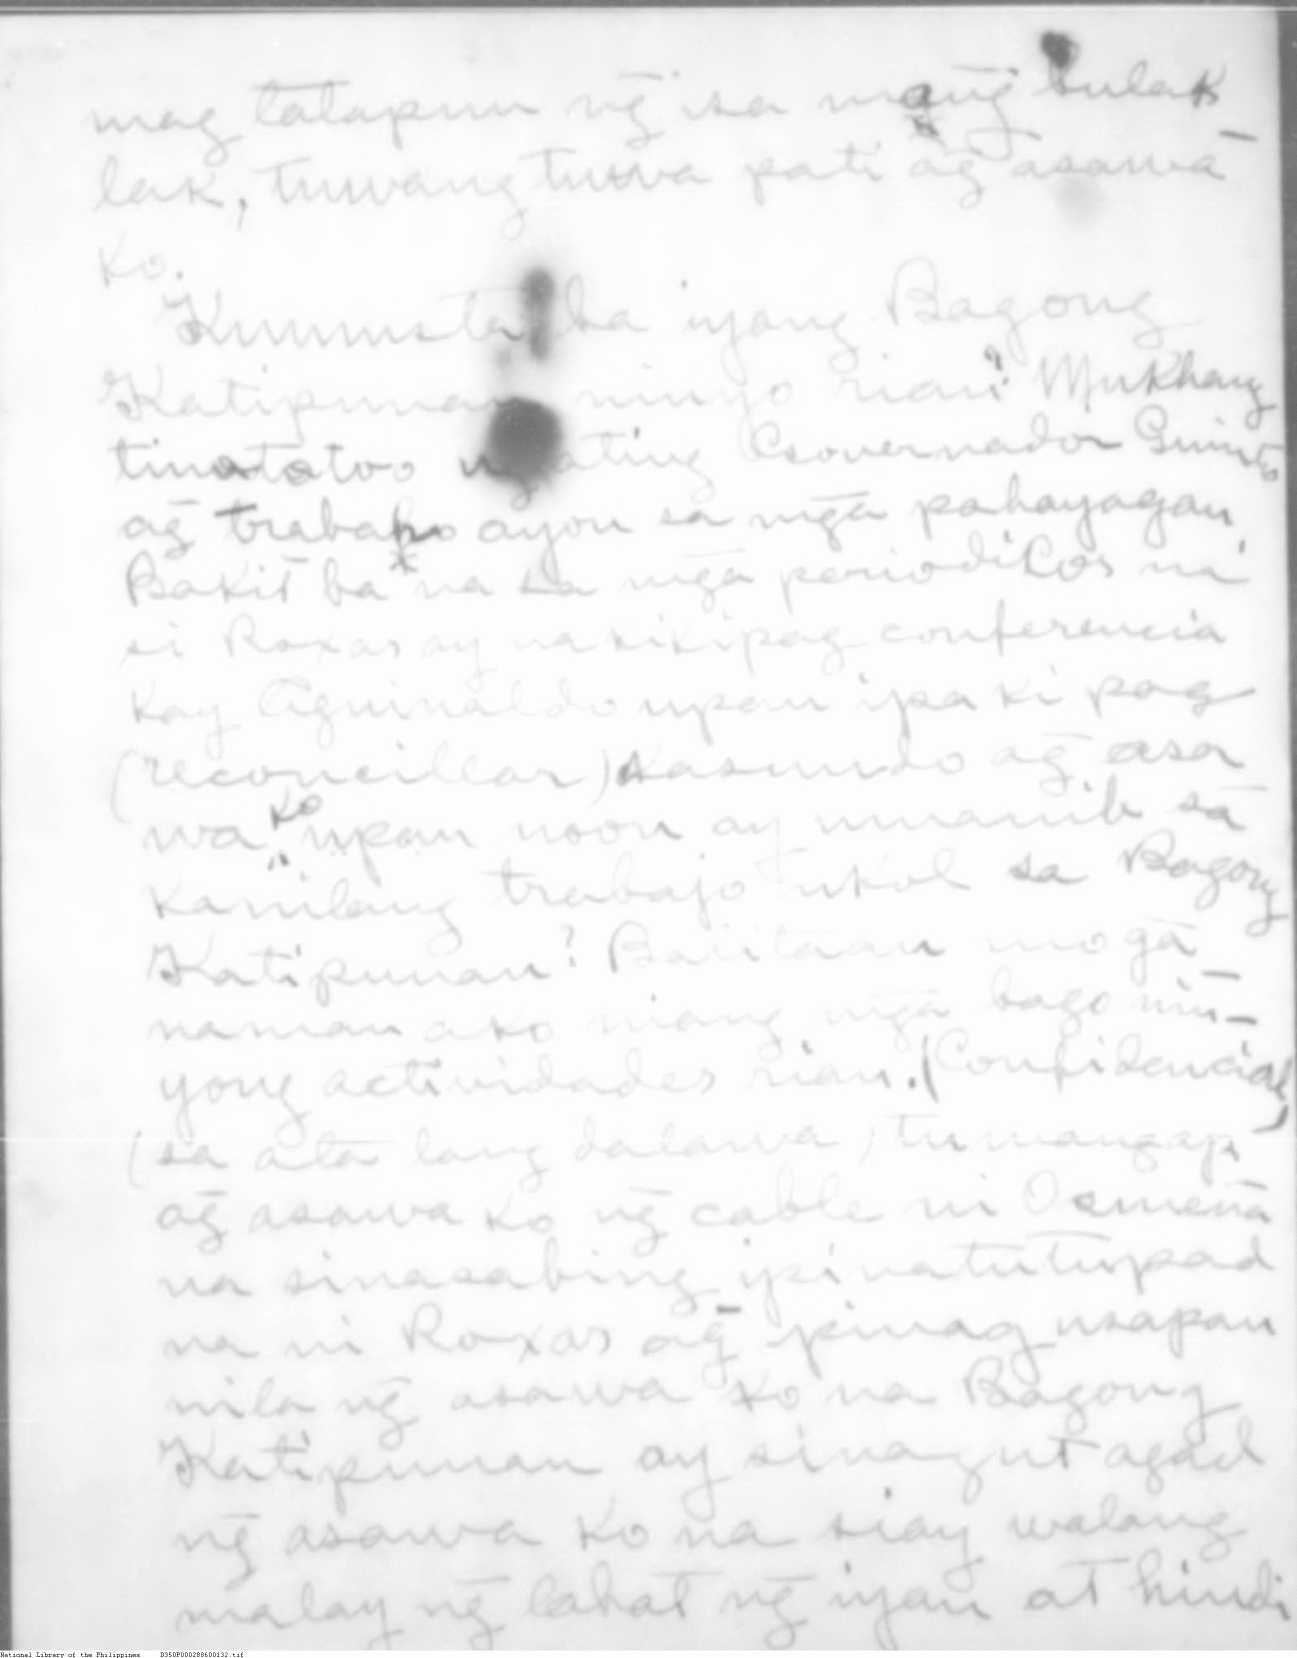 mag tatapun ng̃ isa mang̃ bulak-
lak, tuwang tuwa pati ag̃ asawa
ko.
Kumusta ba iyang Bagong
Katipunan ninyo rian? Mukhang
tinatotoo ng ating Governador Guinto
ag̃ trabaho ayon sa mg̃a pahayagan,
Bakit ba na sa mg̃a periodikos na
si Roxas ay nakikipag conferencia
kay Aguinaldo upan ipa ki pag
(reconcillar) kasundo ag̃ asa
wa ko upan noon ay umanib sa
kanilang trabajo ukol sa Bagong
Katipunan? Balitaan mo g̃a
naman ako niang mg̃a bago nin-
yong actividades rian. (Confidencial,
(sa ata lang dalawa) tumangap
ag̃ asawa ko ng̃ cable ni Osmeña
na sinasabing ipinatutupad
na ni Roxas ag̃ ipinag usapan
nila ng̃ asawa ko na Bagong
Katipunan ay sinagut agad
ng̃ asawa ko na siay walang
malay ng̃ lahat ng̃ iyan at hindi
National Library of the Philippines D350P000288600132.tif